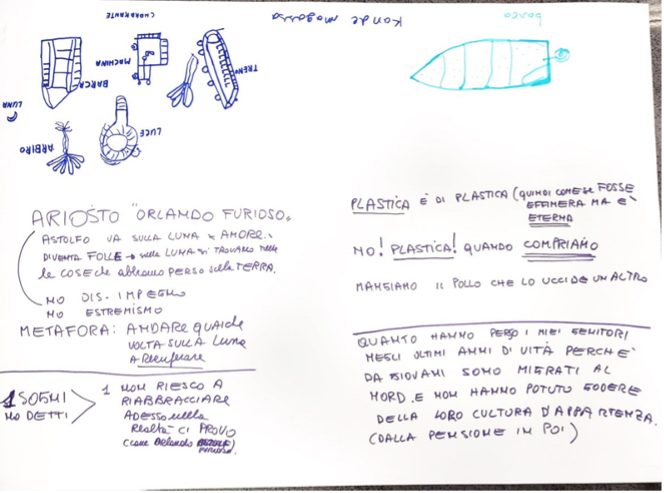 CHAKAKANTE
Konde mogossa
barca
MACHINA
TRENO
BARCA
LUNA
LUCE
ARBIRO
ARIOSTO "ORLANDO FURIOSO"
ASTOLFO VA SULLA LUNA x AMORE.
DIVENTA FOLLE → sulla LUNA si TROVANO tutte
le COSE che abbiamo PERSO sulla TERRA.
NO DIS. IMPEGNO
NO ESTREMISMO
METAFORA: ANDARE QUALCHE
VOLTA SULLA LUNA
A Recuperare
1 SOGNI
NO DETTI
1 NON RIESCO A
RIABBRACCIARE
ADESSO nella
Realtà CI PROVO
(come Orlando
PLASTICA È DI PLASTICA (QUINDI COME SE FOSSE
EFFIMERA MA È
ETERNA
NO! PLASTICA! QUANDO COMPRIAMO
MANGIAMO IL POLLO CHE LO UCCIDE UN ALTRO
QUANTO HANNO PERSO I MIEI GENITORI
NEGLI ULTIMI ANNI DI VITÀ PERCHE'
DA GIOVANI SONO MIGRATI AL
NORD. E NON HANNO POTUTO GODERE
DELLA LORO CULTURA D'APPARTENZA.
(DALLA PENSIONE IN POI)